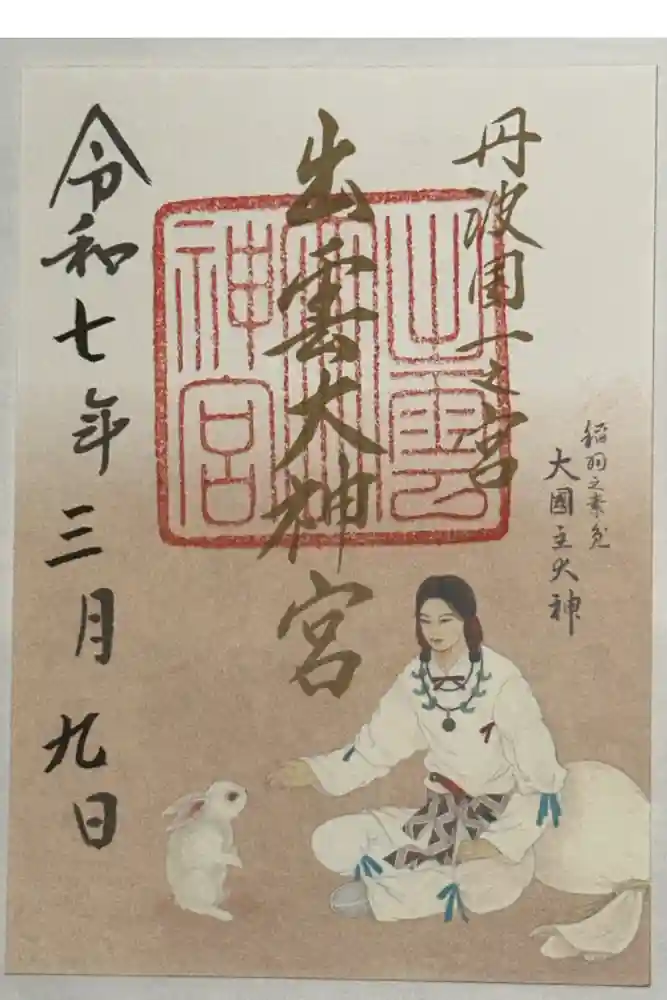 丹波國一之宮
出雲大神宮
出雲大神宮
令和七年三月九日
稲羽之素兎
大國主大神